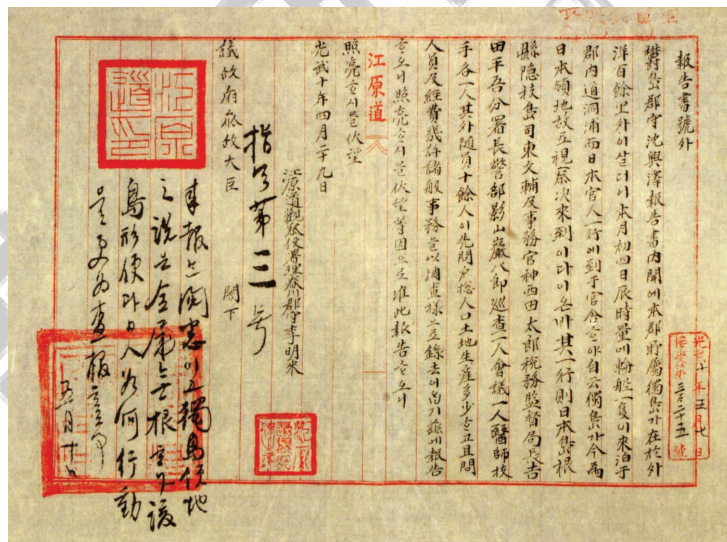 報告書號外
鬱島郡守沈興澤報告書內開에本郡所屬獨島가在於外
洋百餘里外이살더니本月初四日辰時量에輪船一隻이來泊于
郡內道洞浦而日本官人一行에到于官舍ᄒᆞ야自云獨島가今爲
日本領地故로視察次來到이다이온바其一行則日本島根
縣隱技島司東文輔及事務官神西田太郞稅務監督局長吉
田平吾分署長警部影山巖八郞巡査一人會議一人醫師技
手各一人其外隨員十餘人이先問戶總人口土地生產多少ᄒᆞ고且問
人員及經費幾許諸般事務을以調査樣으로錄去이옵기玆에報告
ᄒᆞ오니照亮ᄒᆞ시믈伏望等因으로准此報告ᄒᆞ오니
照亮ᄒᆞ시믈伏望
江原道
光武十年四月二十九日
江原道觀察使署理春川郡守李明來
議政府參政大臣 閣下
指令第三号
來報と閱悉이고獨島領地
之說은全屬無根하나該
島形便과日人如何行動
을更爲査報
光武十年五月七日
接受第三百二十五號
江原道印